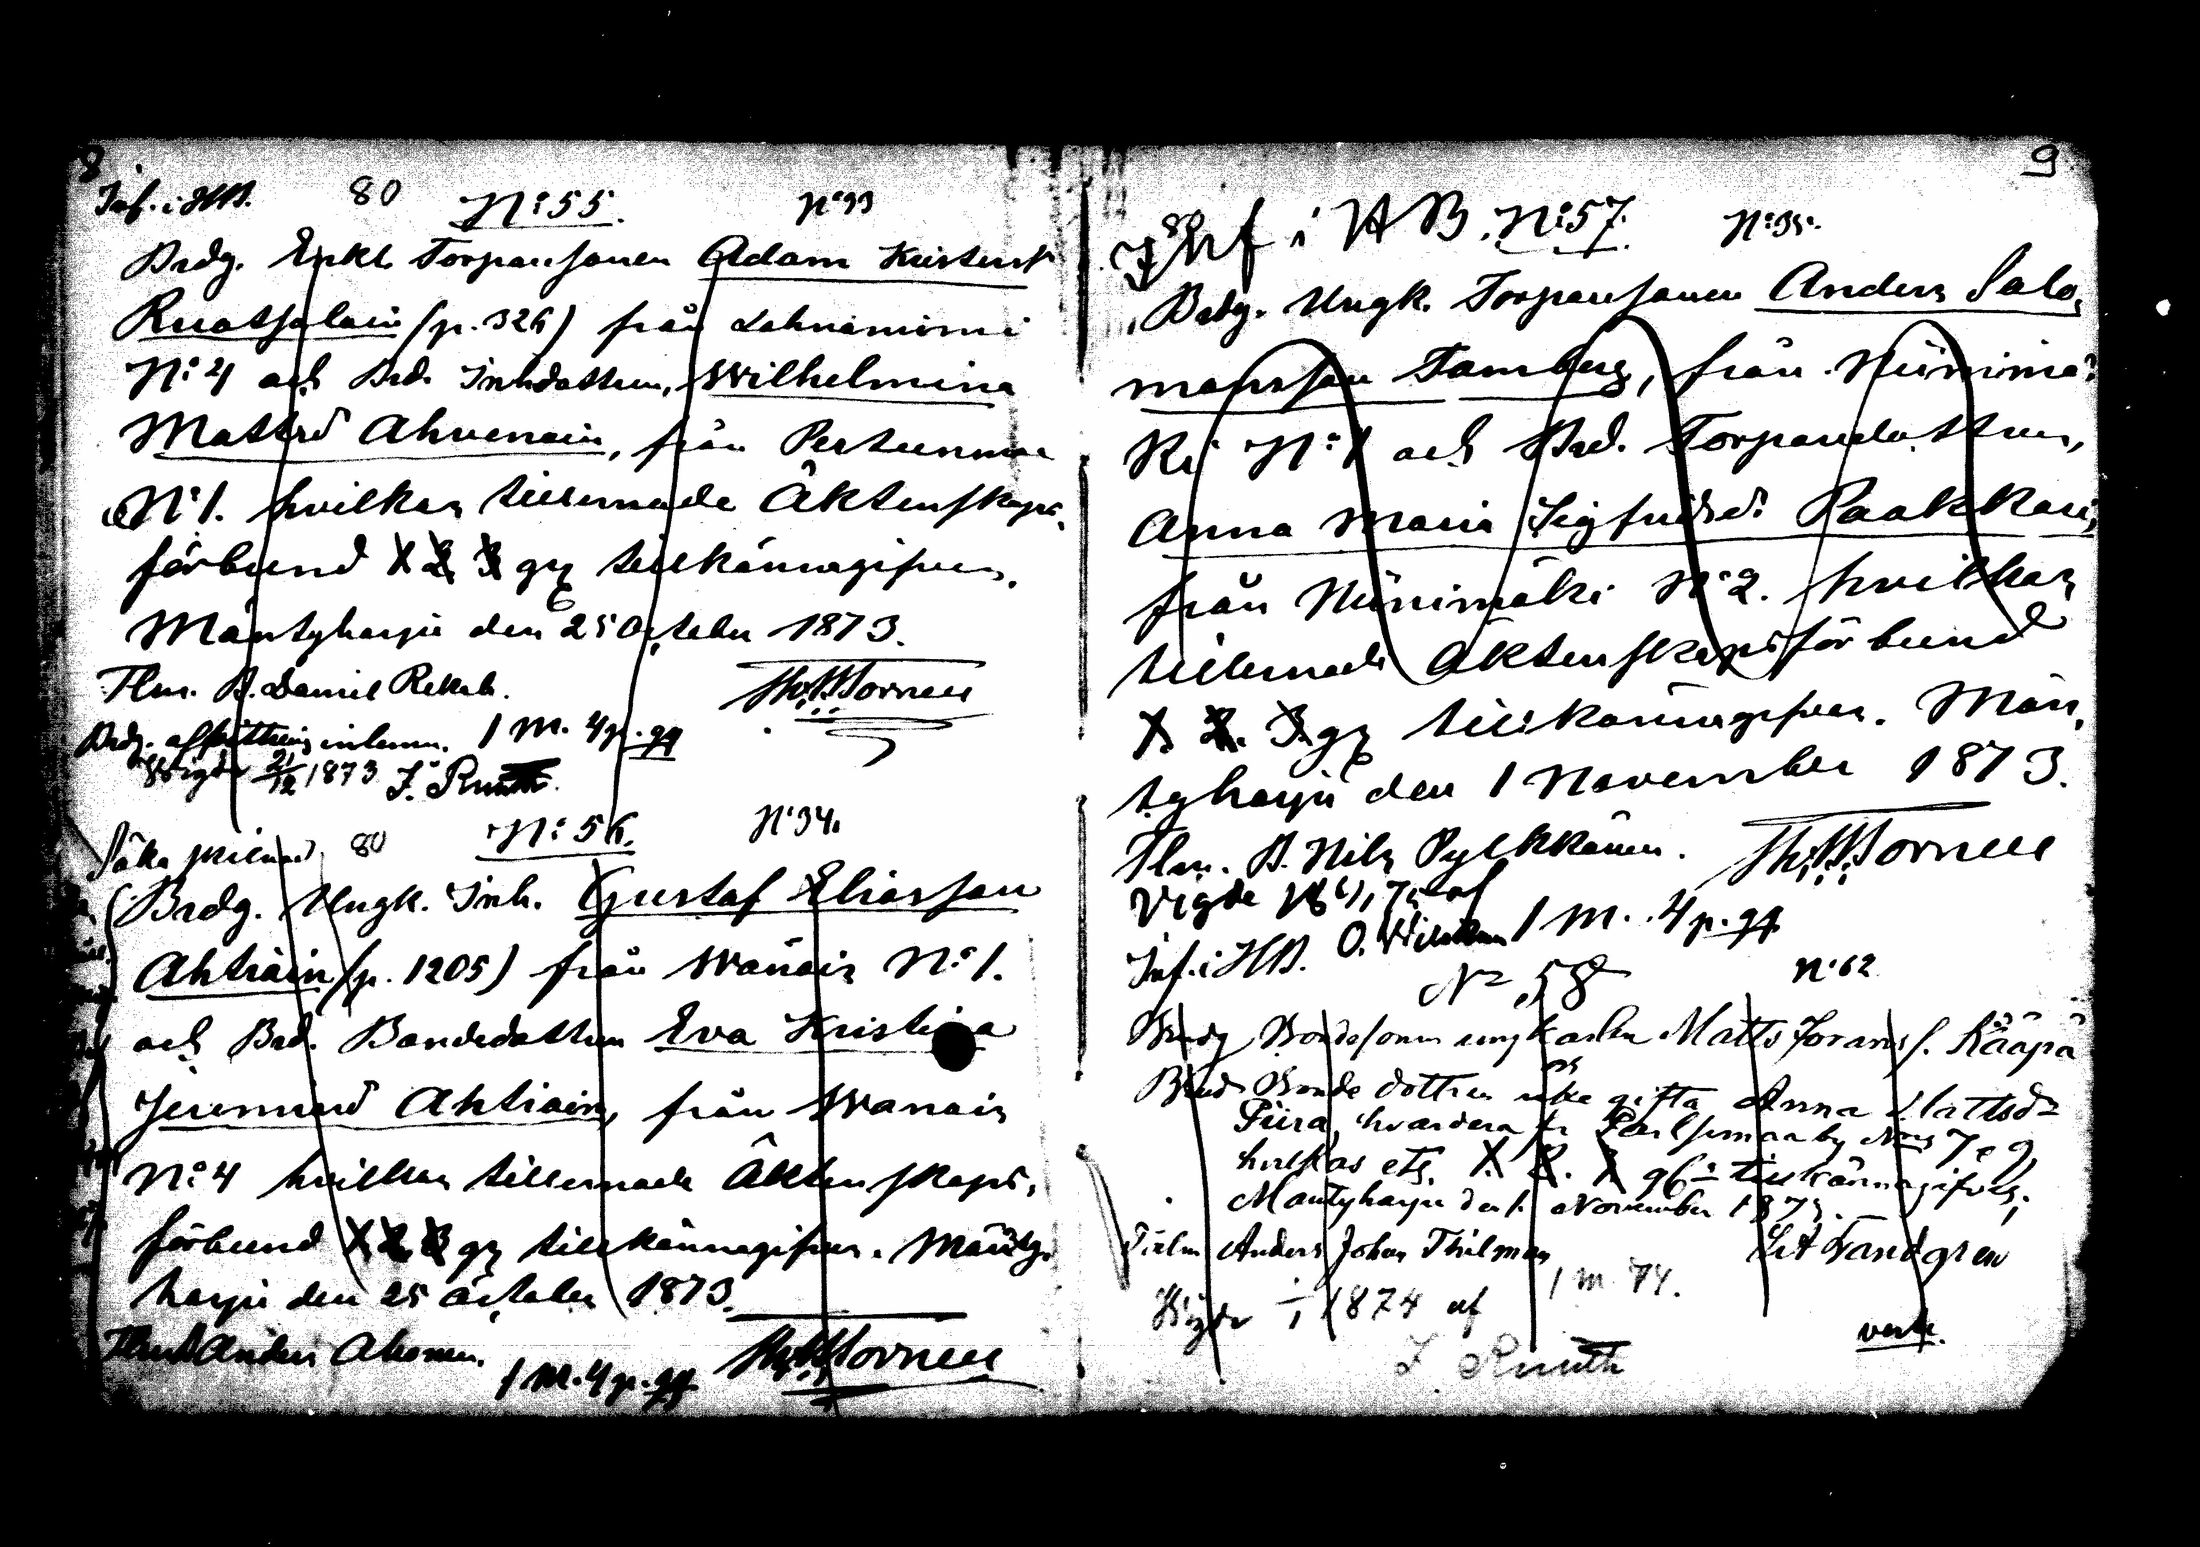 8
Inf. i HB. 80 N:o 55. N:o 33
Brdg. Enkl. Torparsonen Adam Kristerss
Ruotsalain (p. 326) från Lahnaniemi
N:o 4 och Brd. Inhdottren, Wilhelmina
Mattsd Ahvenain, från Pertunmaa
N:o 1. hvilkas tillernade Äktenskaps,
förbund 1 2 3 gg tillkännagifves.
Mäntyharju den 25 October 1873.
Tlm. B. Daniel Rekola. Th. W. Tornell
Brdg. afvittring inlemn. 1 M. 4 p. gg
Wigde 21/12 1873 J. Knuth.
Söka skilnad 80 N:o 56. N:o 34.
Brdg. Ungk. Inh. Gustaf Eliasson
Ahtiain (p. 1205) från Wanain N:o 1.
och Brd. Bondedottren Eva Kristina
Jeremiasd Ahtiain, från Wanain
N:o 4 hvilkas tillernade Äktenskaps,
förbund 1 2 3 gg tillkännagifves. Mänty,
harju den 25 October 1873.
Tlm. B. Anders Ahonen. Th. W. Tornell
1 M. 4 p. gg
9
Inf i HB 80 N:o 57. N:o 35.
Brdg. Ungk. Torparsonen Anders Salo,
monsson Tamberg, från Niinimä,
ki N:o 1 och Brd. Torparedottren,
Anna Maria Sigfridsd: Paakkari,
från Niinimäki N:o 2. hvilkas
tillernade Äktenskapsförbund
1 2. 3. gg tillkännagifves. Män,
tyharju den 1 November 1873.
Tlm. B. Nils Pylkkänen. Th. W. Tornell
Vigde af
O. 1 M. 4 p. gg
Inf. i HB. N:o 58 N:o 62
Brudg Bondesonen ungkarlen Matts Joranss. Kääpä
och
Brud Bonde dottren icke gifta Anna Mattsd:r
Piira, hvardera fr. by N:ris 7 o 9,
hvilkas etc. 1. 2. 3 tillkännagifves;
Mantyharju den 1. November 1873.
Tielm Anders Johan Thilman Landgren
1 m 74.
Wigde 1874 af
J. Knuth
verte.